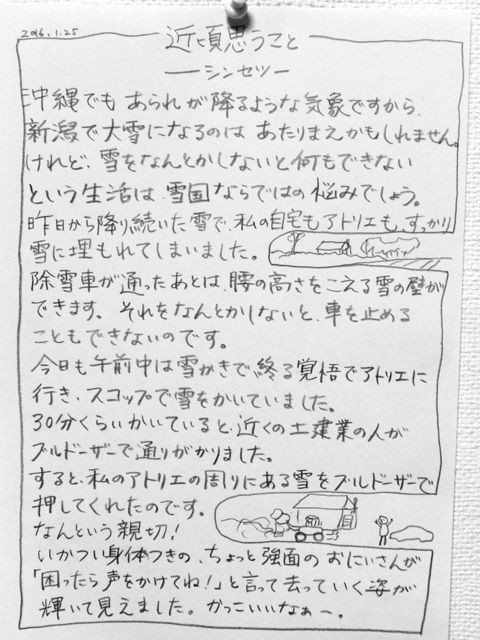 2016.1.25
近頃思うこと
ーシンセツー
沖縄でも あられが降るような気象ですから、
新潟で大雪になるのは あたりまえかもしれません。
けれど、雪をなんとかしないと何もできない
という生活は、雪国ならではの悩みでしょう。
昨日から降り続いた雪で、私の自宅もアトリエも、すっかり
雪に埋もれてしまいました。
除雪車が通ったあとは、腰の高さをこえる雪の壁が
できます。それをなんとかしないと、車を止める
こともできないのです。
今日も午前中は雪かきで終る覚悟でアトリエに
行き、スコップで雪をかいていました。
30分くらいかいていると、近くの土建業の人が
ブルドーザーで通りがかりました。
すると、私のアトリエの周りにある雪をブルドーザーで
押してくれたのです。
なんという親切！
いかつい身体つきの、ちょっと強面のおにいさんが
「困ったら声をかけてね！」と言って去っていく姿が
輝いて見えました。かっこいいなぁ〜。